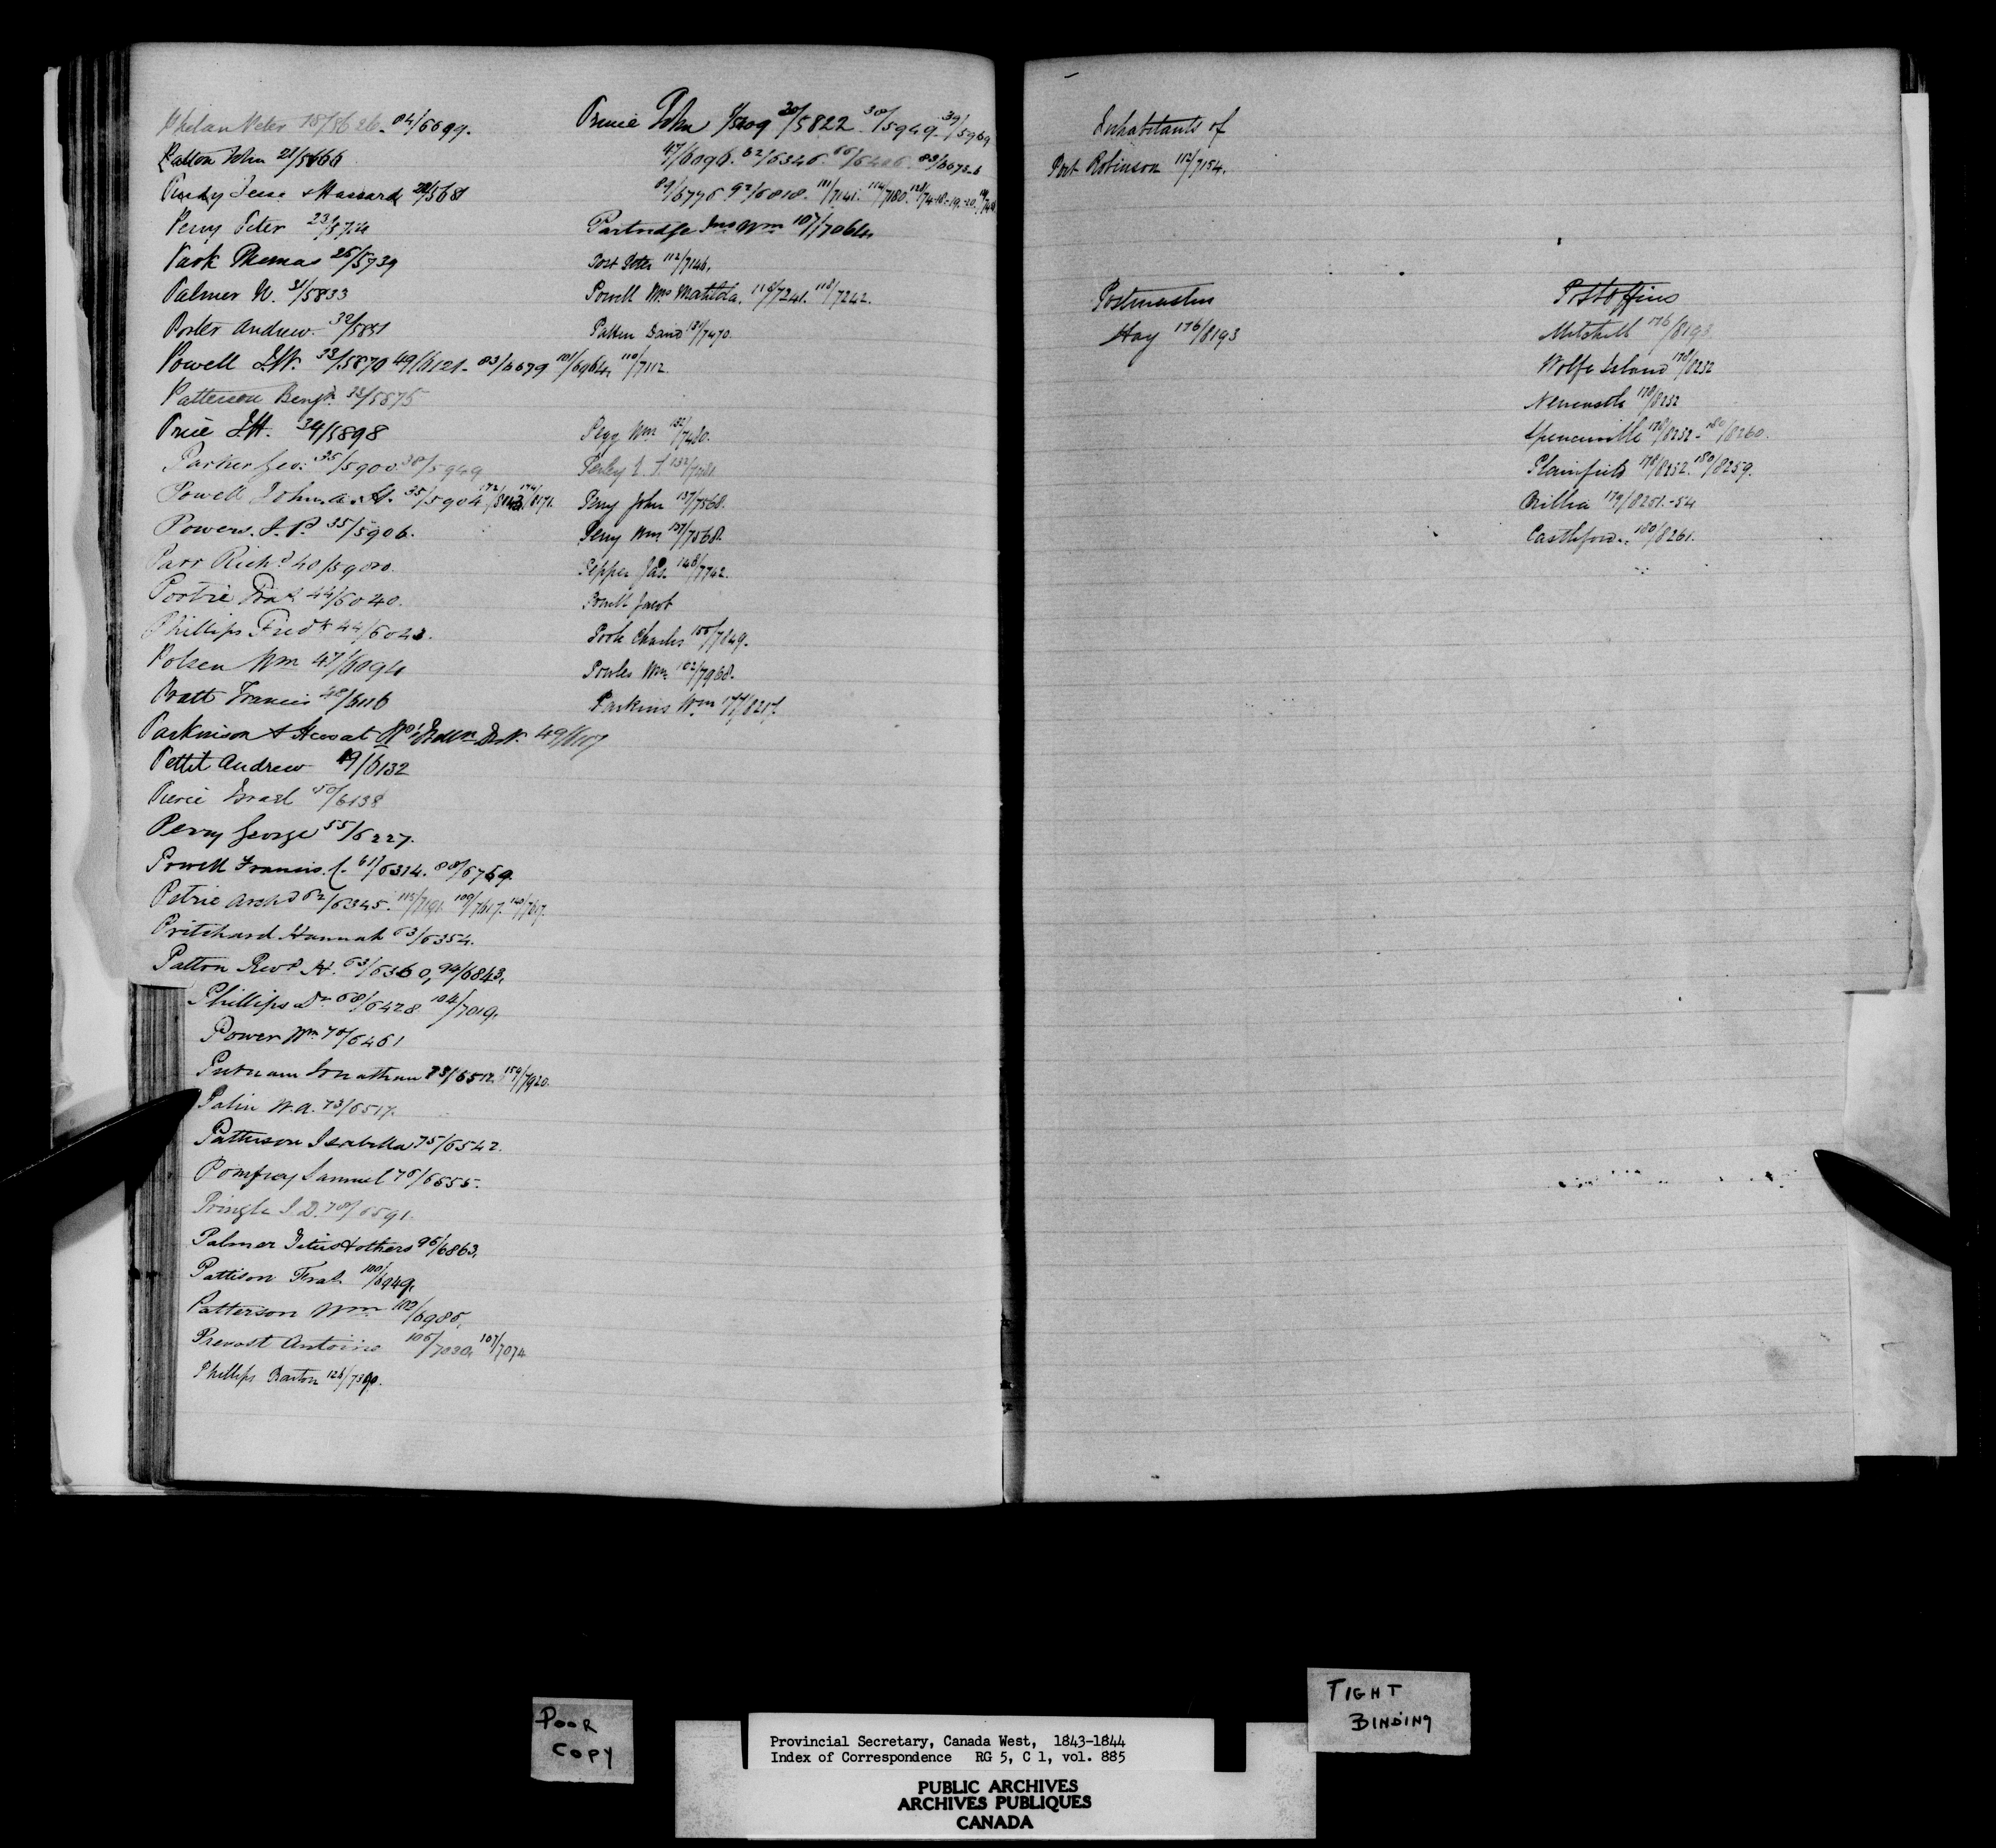 Phelan Peter 18/5626 - 84/6699.
Patton John 21/5666
Purdy Jesse & Hazzard 22/5681
Perry Peter 23/5714
Park Thomas 26/5739
Palmer W. 31/5833
Porter Andrew 32/5851
Powell 33/5870 49/6121 - 83/6679 101/6964 110/7112
Patterson Benjn 33/5875
Price 34/5898
Parker Geo: 35/5900 38/5949
Powell John A. H. 35/5904 172/ 174/8171.
Powers. J. P. 35/5906.
Parr Richd 40/
44/6040.
Phillips Fredk 44/6043.
Polsen Wm 47/6094
Pratt Francis 48/6116
Parkinson & 49/6117
Pettit Andrew 49/6132
Pierce Israel 50/6138
Perry George 55/6227.
Powell Francis. C. 61/6314. 88/6769.
Petrie Archd 62/6345. 115/7191. 140/7617.
Pritchard Hannah 63/6354.
Patton Revd H. 63/6360, 94/6843.
Phillips Dr 68/6428 104/7019.
Power Wm 70/6461
Putnam Jonathan 73/6512. 159/7920.
Palin W. A. 73/6517.
Patterson Isabella 75/6542.
Pomfrey Samuel 76/6555.
Pringle J. D. 78/6591.
Palmer Titus & others 96/6863.
Pattison 100/6949.
Patterson Wm 102/6985.
Prevost Antoine 105/7030, 107/7074
Phillips Barton 126/
Prince John 30/5822 38/5949 - 39/5969
47/6096. 62/6346. 83/6673-
89/6776 92/6818. 111/7141. 114/7180.
Partridge Wm 107/7064
Post Peter 112/7146.
Powell Mrs Matilda. 118/7241. 118/7242.
Patten David 131/7470.
Pegg Wm 132/7480.
Perley 132/
Perry John 137/7568.
Perry Wm 137/7568.
Pepper Jas. 148/7742.
Powell Jacob
Poole Charles 155/7849.
Powles Wm 162/7968.
Parkins Wm 177/8217.
Inhabitants of
Port Robinson 112/7154.
Postmasters
Hay 176/8193
Post Offices
Mitchell 176/8193
Wolfe Island 178/8232
Newcastle 178/8232
Spencerville 178/8232 - 180/8260.
Plainfield 178/8232. 180/8259.
Orillia 179/8251.-54
Castleford. 180/8261.
POOR
COPY
TIGHT
BINDING
Provincial Secretary, Canada West, 1843-1844
Index of Correspondence RG 5, C 1, vol. 885
PUBLIC ARCHIVES
ARCHIVES PUBLIQUES
CANADA